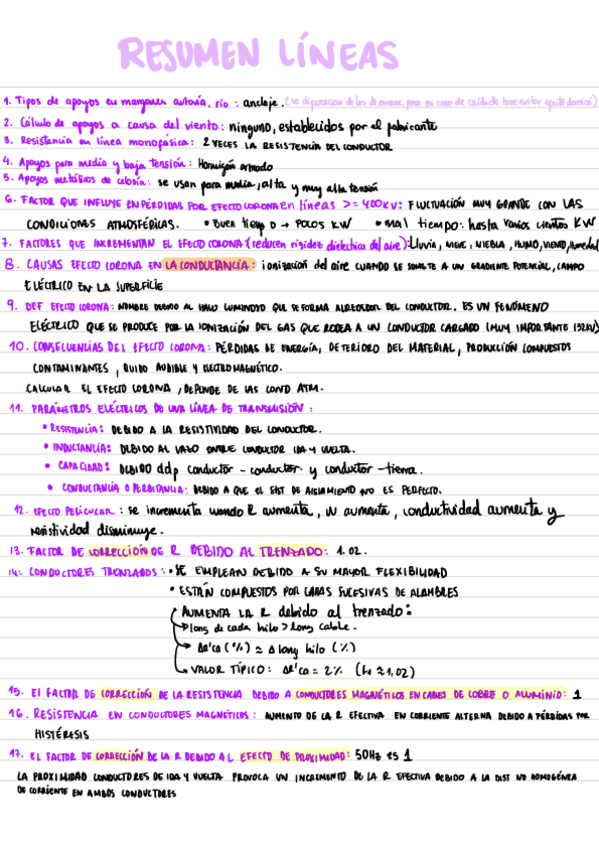 RESUMEN LÍNEAS
1. Tipos de apoyos en margenes autovía, río : anclaje. (se diferencian de los de amarre, pero en caso de caída de torre evitar efecto dominó)
2. Cálculo de apoyos a causa del viento: ninguno, establecidos por el fabricante
3. Resistencia en línea monofásica: 2 VECES LA RESISTENCIA DEL CONDUCTOR
4. Apoyos para media y baja tensión: Hormigón armado
5. Apoyos metálicos de celosía: se usan para media, alta y muy alta tensión
6. FACTOR QUE INFLUYE EN PÉRDIDAS POR EFECTO CORONA en líneas >= 400KV: FLUCTUACIÓN MUY GRANDE CON LAS
CONDICIONES ATMOSFÉRICAS. • Buen tiempo → POCOS KW • Mal tiempo: hasta varios cientos KW
7. FACTORES QUE INCREMENTAN EL EFECTO CORONA (reducen rigidez dielectrica del aire): Lluvia, NIEVE, NIEBLA, HUMO, VIENTO, Humedad
8. CAUSAS EFECTO CORONA EN LA CONDUCTANCIA: ionización del aire CUANDO SE SOMETE A UN GRADIENTE POTENCIAL, CAMPO
ELÉCTRICO EN LA SUPERFICIE
9. DEF EFECTO CORONA: NOMBRE DEBIDO AL HALO LUMINOSO QUE SE FORMA ALREDEDOR DEL CONDUCTOR. ES UN FENÓMENO
ELÉCTRICO QUE SE PRODUCE POR LA IONIZACIÓN DEL GAS QUE RODEA A UN CONDUCTOR CARGADO (MUY IMPORTANTE 132KV)
10. CONSECUENCIAS DEL EFECTO CORONA: PÉRDIDAS DE ENERGÍA, DETERIORO DEL MATERIAL, PRODUCCIÓN COMPUESTOS
CONTAMINANTES, RUIDO AUDIBLE Y ELECTROMAGNÉTICO.
CALCULAR EL EFECTO CORONA, DEPENDE DE LAS COND ATM.
11. PARÁMETROS ELÉCTRICOS DE UNA LÍNEA DE TRANSMISIÓN :
• RESISTENCIA: DEBIDO A LA RESISTIVIDAD DEL CONDUCTOR.
• INDUCTANCIA: DEBIDO AL LAZO ENTRE CONDUCTOR IDA Y VUELTA.
• CAPACIDAD: DEBIDO ddp conductor - conductor y conductor - tierra.
• CONDUCTANCIA O PERDITANCIA: DEBIDO A QUE EL SIST DE AISLAMIENTO NO ES PERFECTO.
12. EFECTO PELICULAR : se incrementa cuando R aumenta, w aumenta, conductividad aumenta y
resistividad disminuye.
13. FACTOR DE CORRECCIÓN DE R DEBIDO AL TRENZADO: 1.02.
14. CONDUCTORES TRENZADOS: • SE EMPLEAN DEBIDO A SU MAYOR FLEXIBILIDAD
• ESTÁN COMPUESTOS POR CAPAS SUCESIVAS DE ALAMBRES
AUMENTA LA R debido al trenzado:
→ long de cada hilo > long cable.
→ ΔR'ca (%) ≈ Δ long hilo (%)
→ VALOR TÍPICO: ΔR'ca = 2% (kr ≈ 1,02)
15. El FACTOR DE CORRECCIÓN DE LA RESISTENCIA DEBIDO A CONDUCTORES MAGNÉTICOS EN CABLES DE COBRE O ALUMINIO: 1
16. RESISTENCIA EN CONDUCTORES MAGNÉTICOS: AUMENTO DE LA R EFECTIVA EN CORRIENTE ALTERNA DEBIDO A PÉRDIDAS POR
HISTÉRESIS
17. EL FACTOR DE CORRECCIÓN DE LA R DEBIDO AL EFECTO DE PROXIMIDAD: 50Hz es 1
LA PROXIMIDAD CONDUCTORES DE IDA Y VUELTA PROVOCA UN INCREMENTO DE LA R EFECTIVA DEBIDO A LA DIST NO HOMOGÉNEA
DE CORRIENTE EN AMBOS CONDUCTORES